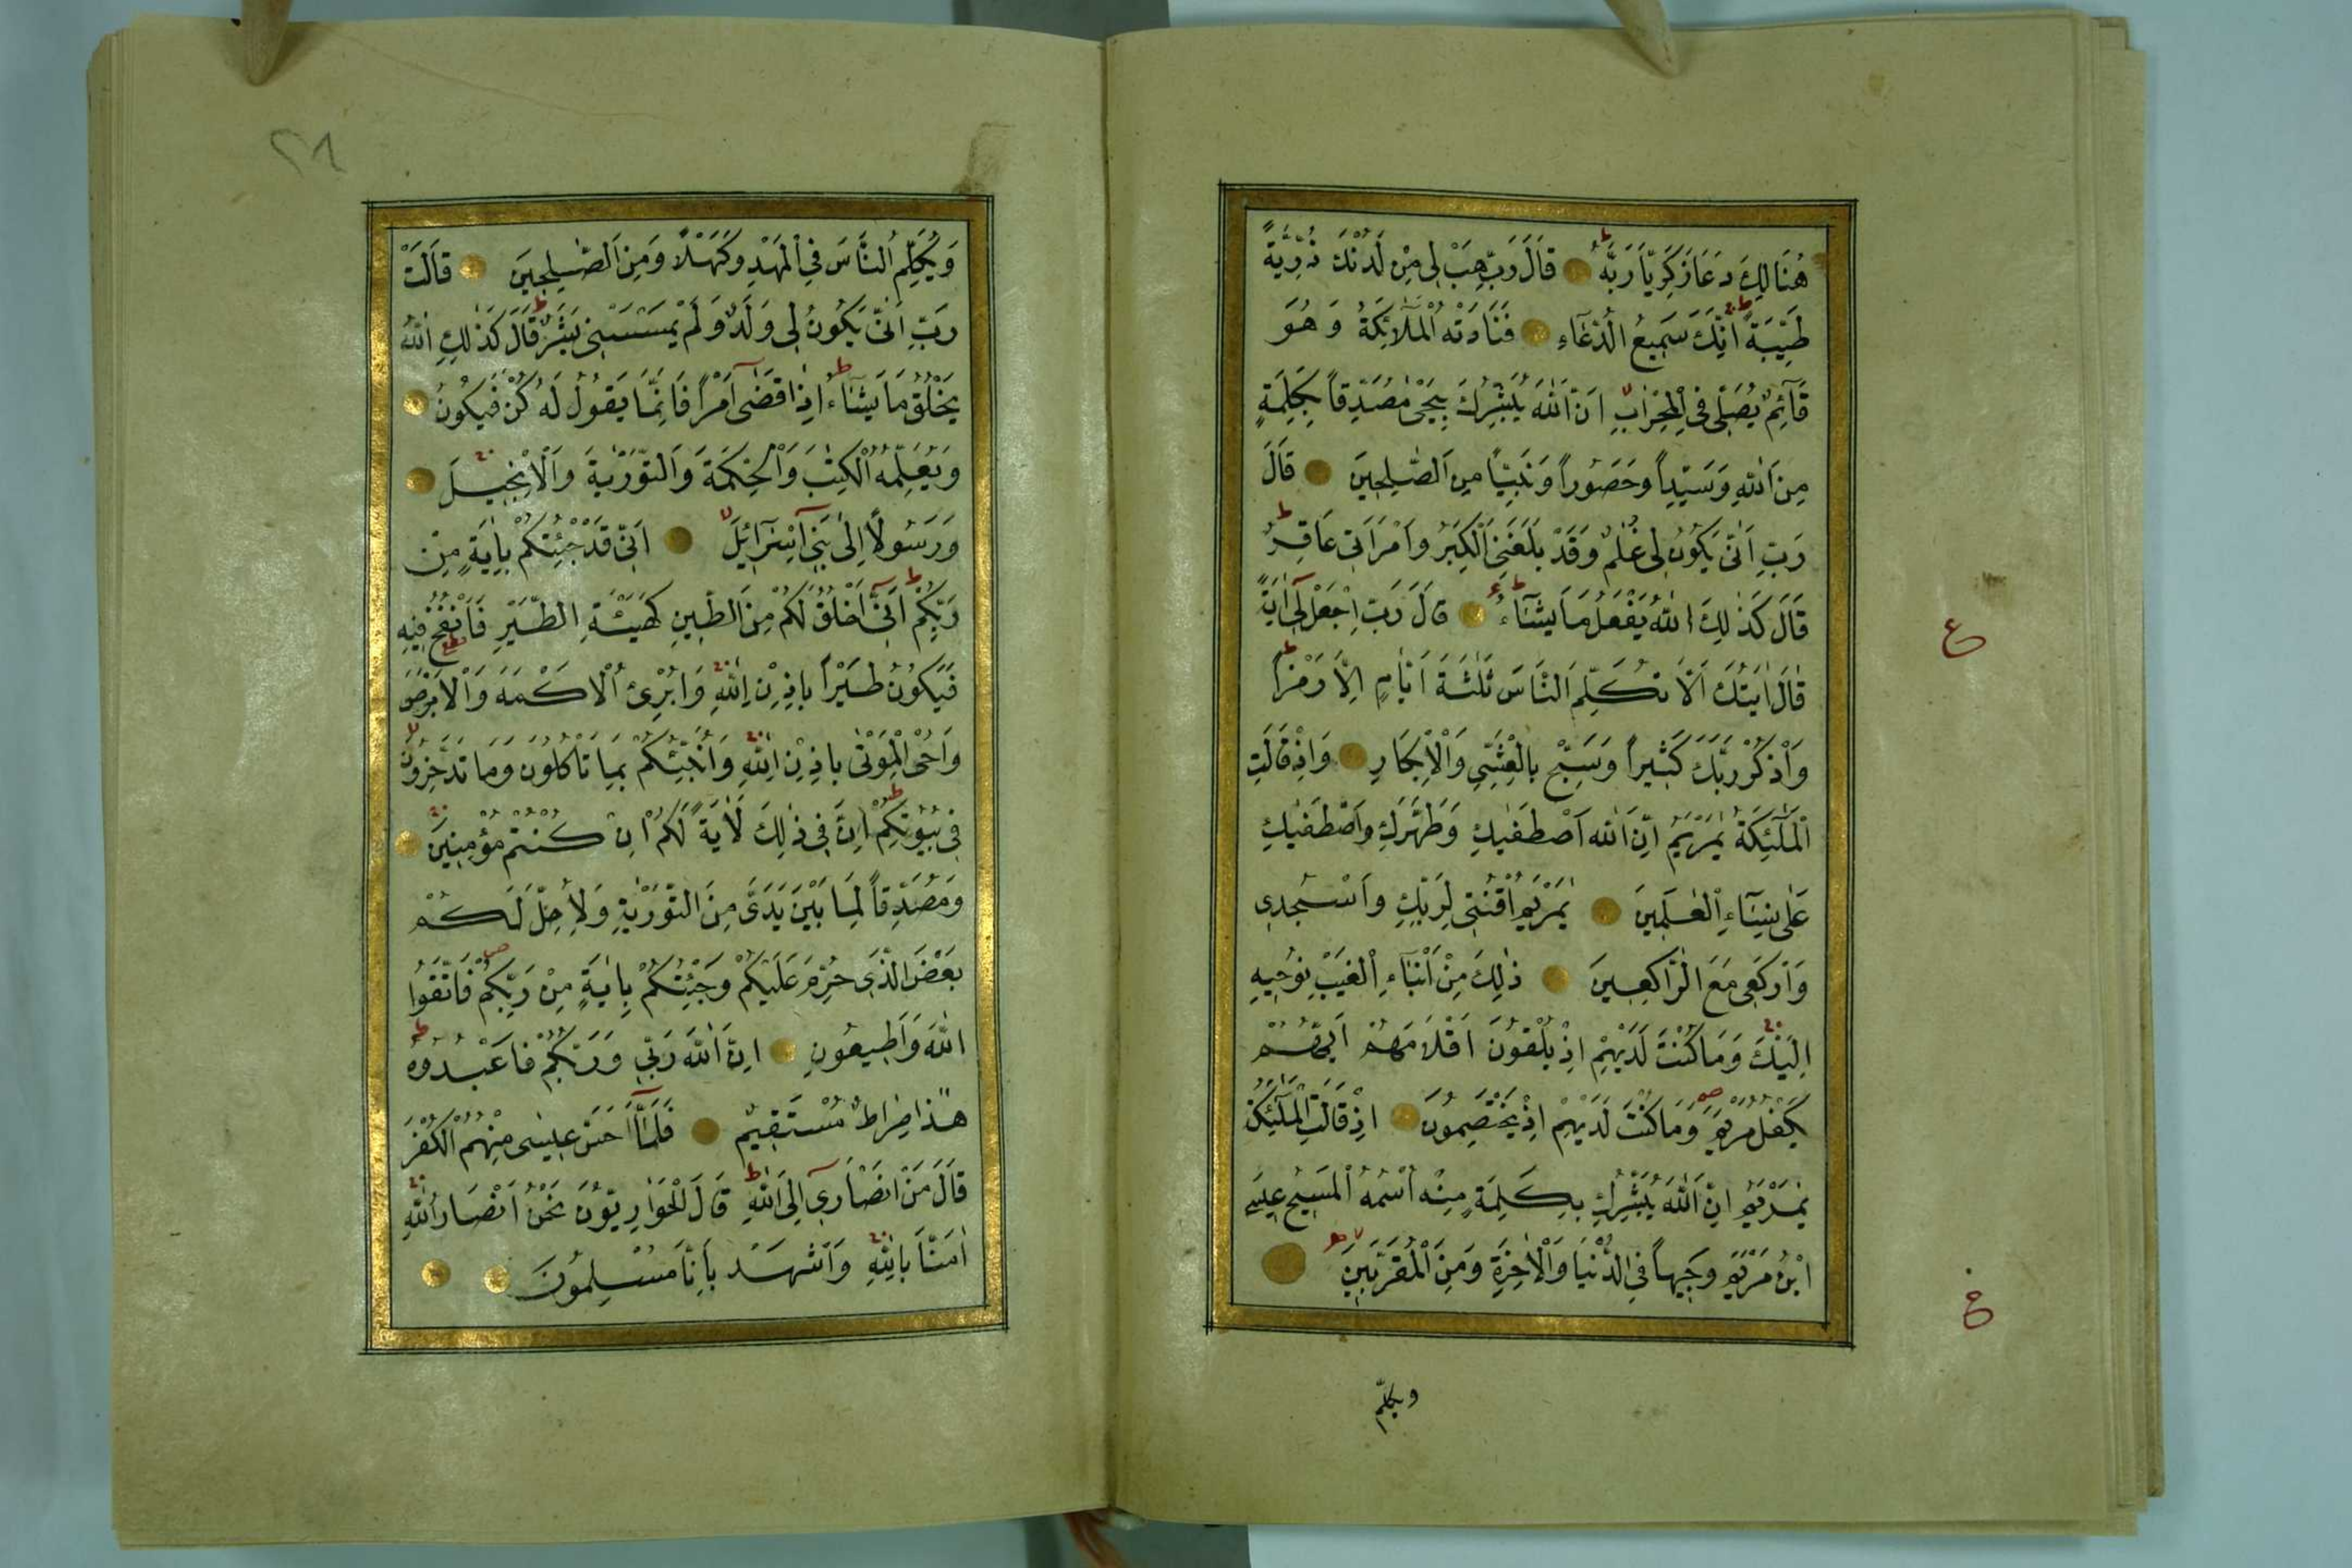 هُنَالِكَ دَعَا زَكَرِيَّا رَبَّهُ ط قَالَ رَبِّ هَبْ لِى مِنْ لَدُنْكَ ذُرِّيَّةً
طَيِّبَةً ط اِنَّكَ سَمِيعُ الدُّعَآءِ فَنَادَتْهُ الْمَلَآئِكَةُ وَهُوَ
قَآئِمٌ يُصَلِّى فِى الْمِحْرَابِ لا اَنَّ اللّٰهَ يُبَشِّرُكَ بِيَحْيٰى مُصَدِّقاً بِكَلِمَةٍ
مِنَ اللّٰهِ وَسَيِّداً وَحَصُوراً وَنَبِيّاً مِنَ الصّٰلِحِينَ قَالَ
رَبِّ اَنّٰى يَكُونُ لِى غُلٰمٌ وَقَدْ بَلَغَنِىَ الْكِبَرُ وَامْرَاَتِى عَاقِرٌ ط
قَالَ كَذٰلِكَ اللّٰهُ يَفْعَلُ مَا يَشَآءُ قَالَ رَبِّ اجْعَلْ لِى اٰيَةً
قَالَ اٰيَتُكَ اَلَّا تُكَلِّمَ النَّاسَ ثَلٰثَةَ اَيَّامٍ اِلَّا رَمْزاً ط
وَاذْكُرْ رَبَّكَ كَثِيراً وَسَبِّحْ بِالْعَشِىِّ وَالْاِبْكَارِ وَاِذْ قَالَتِ
الْمَلٰٓئِكَةُ يٰمَرْيَمُ اِنَّ اللّٰهَ اصْطَفٰيكِ وَطَهَّرَكِ وَاصْطَفٰيكِ
عَلٰى نِسَآءِ الْعٰلَمِينَ يٰمَرْيَمُ اقْنُتِى لِرَبِّكِ وَاسْجُدِى
وَارْكَعِى مَعَ الرَّاكِعِينَ ذٰلِكَ مِنْ اَنْبَآءِ الْغَيْبِ نُوحِيهِ
اِلَيْكَ وَمَا كُنْتَ لَدَيْهِمْ اِذْ يُلْقُونَ اَقْلَامَهُمْ اَيُّهُمْ
يَكْفُلُ مَرْيَمَ ص وَمَا كُنْتَ لَدَيْهِمْ اِذْ يَخْتَصِمُونَ اِذْ قَالَتِ الْمَلٰٓئِكَةُ
يٰمَرْيَمُ اِنَّ اللّٰهَ يُبَشِّرُكِ بِكَلِمَةٍ مِنْهُ اسْمُهُ الْمَسِيحُ عِيسَى
ابْنُ مَرْيَمَ وَجِيهاً فِى الدُّنْيَا وَالْاٰخِرَةِ وَمِنَ الْمُقَرَّبِينَ لا
ع
ويكلّم
٢٨
وَيُكَلِّمُ النَّاسَ فِى الْمَهْدِ وَكَهْلاً وَمِنَ الصّٰلِحِينَ قَالَتْ
رَبِّ اَنّٰى يَكُونُ لِى وَلَدٌ وَلَمْ يَمْسَسْنِى بَشَرٌ ط قَالَ كَذٰلِكِ اللّٰهُ
يَخْلُقُ مَا يَشَآءُ ط اِذَا قَضٰى اَمْراً فَاِنَّمَا يَقُولُ لَهُ كُنْ فَيَكُونُ
وَيُعَلِّمُهُ الْكِتٰبَ وَالْحِكْمَةَ وَالتَّوْرٰيةَ وَالْاِنْجِيلَ
وَرَسُولاً اِلٰى بَنِى اِسْرَآئِلَ لا اَنِّى قَدْ جِئْتُكُمْ بِاٰيَةٍ مِنْ
رَبِّكُمْ ط اَنِّى اَخْلُقُ لَكُمْ مِنَ الطِّينِ كَهَيْئَةِ الطَّيْرِ فَاَنْفُخُ فِيهِ
فَيَكُونُ طَيْراً بِاِذْنِ اللّٰهِ وَاُبْرِئُ الْاَكْمَهَ وَالْاَبْرَصَ
وَاُحْىِ الْمَوْتٰى بِاِذْنِ اللّٰهِ وَاُنَبِّئُكُمْ بِمَا تَاْكُلُونَ وَمَا تَدَّخِرُونَ لا
فِى بُيُوتِكُمْ ط اِنَّ فِى ذٰلِكَ لَاٰيَةً لَكُمْ اِنْ كُنْتُمْ مُؤْمِنِينَ
وَمُصَدِّقاً لِمَا بَيْنَ يَدَىَّ مِنَ التَّوْرٰيةِ وَلِاُحِلَّ لَكُمْ
بَعْضَ الَّذِى حُرِّمَ عَلَيْكُمْ وَجِئْتُكُمْ بِاٰيَةٍ مِنْ رَبِّكُمْ فَاتَّقُوا
اللّٰهَ وَاَطِيعُونِ اِنَّ اللّٰهَ رَبِّى وَرَبُّكُمْ فَاعْبُدُوهُ ط
هٰذَا صِرَاطٌ مُسْتَقِيمٌ فَلَمَّآ اَحَسَّ عِيسٰى مِنْهُمُ الْكُفْرَ
قَالَ مَنْ اَنْصَارِى اِلَى اللّٰهِ ط قَالَ الْحَوَارِيُّونَ نَحْنُ اَنْصَارُ اللّٰهِ
اٰمَنَّا بِاللّٰهِ وَاشْهَدْ بِاَنَّا مُسْلِمُونَ